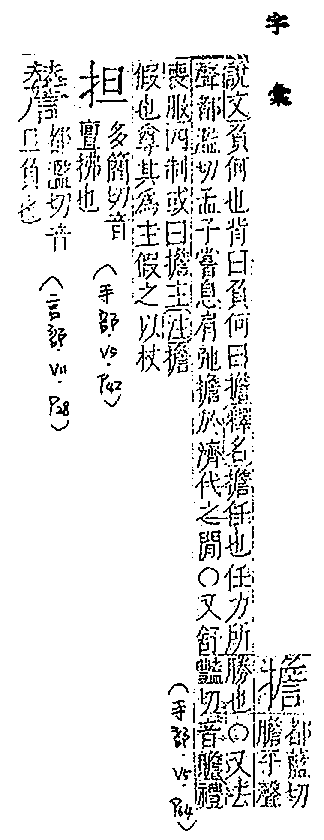 字彙
擔
都藍切
膽平聲
說文負何也背曰負何曰擔釋名擔任也任力所勝也○又法
聲都濫切孟子嘗息肩弛擔於濟代之閒○又舒豔切音贍禮
喪服四制或曰擔主注擔
假也尊其爲主假之以杖
(手部.V5.P64)
担
多簡切音
亶拂也
(手部.V5.P42)
都濫切音
旦負也
(言部.V11.P28)